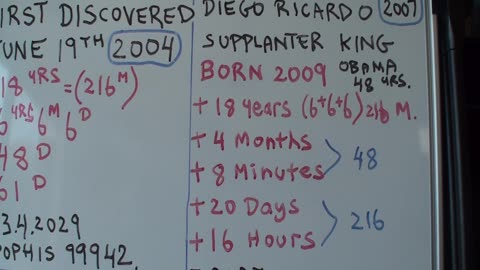 FIRST DISCOVERED
JUNE 19TH 2004
18 YRS = (216M)
6YRS 6M 6D
48 D
61 D
13.4.2029
APOPHIS 99942
DIEGO RICARDO 2007
SUPPLANTER KING
BORN 2009 OBAMA 48 YRS.
+ 18 years (6+6+6) 216 M.
+ 4 Months
+ 8 Minutes
48
+ 20 Days
+ 16 Hours
216